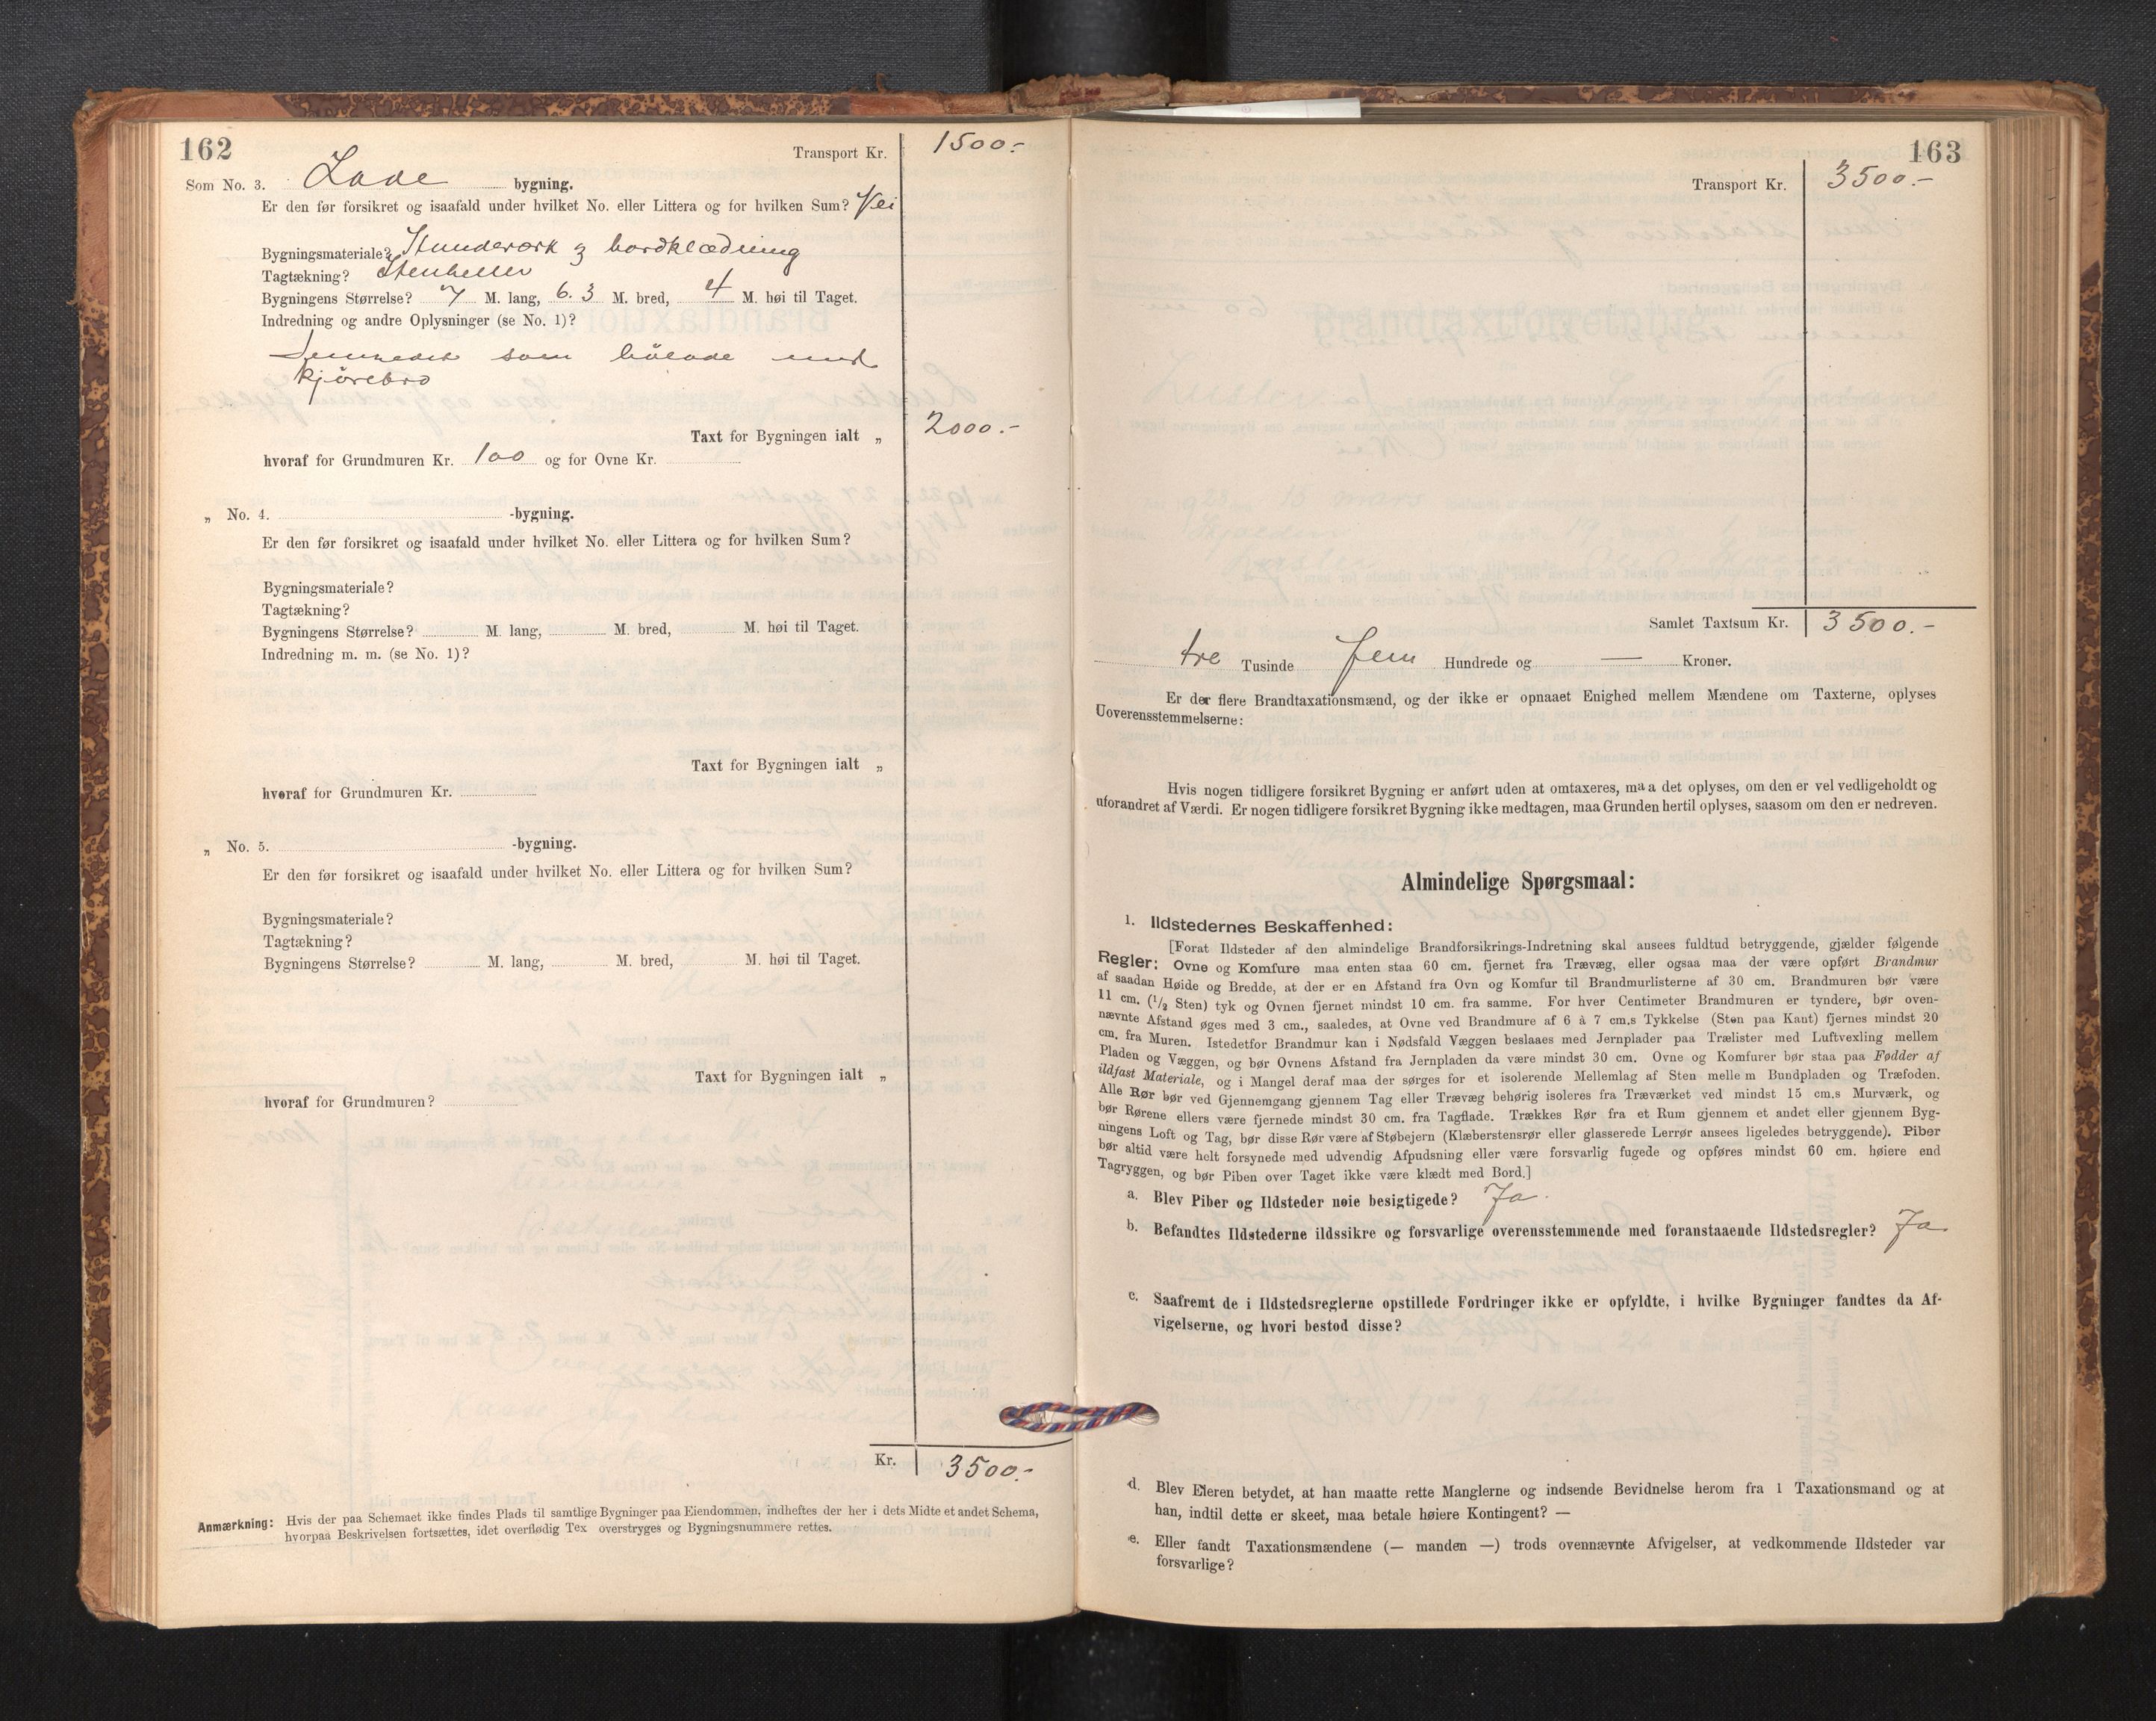 162
Transport Kr. 1500.-
Som No. 3. Lade bygning.
Er den før forsikret og isaafald under hvilket No. eller Littera og for hvilken Sum? Nei
Bygningsmateriale? Stenderverk & bordklædning
Tagtækning? Stenheller
Bygningens Størrelse? 7 M. lang, 6.3 M. bred, 4 M. høi til Taget.
Indredning og andre Oplysninger (se No. 1)?
som hölade med
kjörebro
Taxt for Bygningen ialt „ 2000.-
hvoraf for Grundmuren Kr. 100 og for Ovne Kr.
„ No. 4. -bygning.
Er den før forsikret og isaafald under hvilket No. eller Littera og for hvilken Sum?
Bygningsmateriale?
Tagtækning?
Bygningens Størrelse? M. lang, M. bred, M. høi til Taget.
Indredning m. m. (se No. 1)?
Taxt for Bygningen ialt „
hvoraf for Grundmuren Kr.
„ No. 5. -bygning.
Er den før forsikret og isaafald under hvilket No. eller Littera og for hvilken Sum?
Bygningsmateriale?
Tagtækning?
Bygningens Størrelse? M. lang, M. bred, M. høi til Taget.
Taxt for Bygningen ialt „
hvoraf for Grundmuren?
Kr. 3500.-
Anmærkning: Hvis der paa Schemaet ikke findes Plads til samtlige Bygninger paa Eiendommen, indheftes der her i dets Midte et andet Schema,
hvorpaa Beskrivelsen fortsættes, idet overflødig Tex overstryges og Bygningsnummere rettes.
163
Transport Kr. 3500.-
Samlet Taxtsum Kr. 3500.-
tre Tusinde fem Hundrede og — Kroner.
Er der flere Brandtaxationsmænd, og der ikke er opnaaet Enighed mellem Mændene om Taxterne, oplyses
Uoverensstemmelserne:
Hvis nogen tidligere forsikret Bygning er anført uden at omtaxeres, maa det oplyses, om den er vel vedligeholdt og
uforandret af Værdi. Er nogen tidligere forsikret Bygning ikke medtagen, maa Grunden hertil oplyses, saasom om den er nedreven.
Almindelige Spørgsmaal:
1. Ildstedernes Beskaffenhed:
[Forat Ildsteder af den almindelige Brandforsikrings-Indretning skal ansees fuldtud betryggende, gjælder følgende
Regler: Ovne og Komfure maa enten staa 60 cm. fjernet fra Trævæg, eller ogsaa maa der være opført Brandmur
af saadan Høide og Bredde, at der er en Afstand fra Ovn og Komfur til Brandmurlisterne af 30 cm. Brandmuren bør være
11 cm. (½ Sten) tyk og Ovnen fjernet mindst 10 cm. fra samme. For hver Centimeter Brandmuren er tyndere, bør oven-
nævnte Afstand øges med 3 cm., saaledes, at Ovne ved Brandmure af 6 à 7 cm.s Tykkelse (Sten paa Kant) fjernes mindst 20
cm. fra Muren. Istedetfor Brandmur kan i Nødsfald Væggen beslaaes med Jernplader paa Trælister med Luftvexling mellem
Pladen og Væggen, og bør Ovnens Afstand fra Jernpladen da være mindst 30 cm. Ovne og Komfurer bør staa paa Fødder af
ildfast Materiale, og i Mangel deraf maa der sørges for et isolerende Mellemlag af Sten mellem Bundpladen og Træfoden.
Alle Rør bør ved Gjennemgang gjennem Tag eller Trævæg behørig isoleres fra Træværket ved mindst 15 cm.s Murværk, og
bør Rørene ellers være fjernede mindst 30 cm. fra Tagflade. Trækkes Rør fra et Rum gjennem et andet eller gjennem Byg-
ningens Loft og Tag, bør disse Rør være af Støbejern (Klæberstensrør eller glasserede Lerrør ansees ligeledes betryggende). Piber
bør altid være helt forsynede med udvendig Afpudsning eller være forsvarlig fugede og opføres mindst 60 cm. høiere end
Tagryggen, og bør Piben over Taget ikke være klædt med Bord.]
a. Blev Piber og Ildsteder nøie besigtigede? Ja.
b. Befandtes Ildstederne ildssikre og forsvarlige overensstemmende med foranstaaende Ildstedsregler? Ja
c. Saafremt de i Ildstedsreglerne opstillede Fordringer ikke er opfyldte, i hvilke Bygninger fandtes da Af-
vigelserne, og hvori bestod disse?
d. Blev Eieren betydet, at han maatte rette Manglerne og indsende Bevidnelse herom fra 1 Taxationsmand og at
han, indtil dette er skeet, maa betale høiere Kontingent? —
e. Eller fandt Taxationsmændene (— manden —) trods ovennævnte Afvigelser, at vedkommende Ildsteder var
forsvarlige?